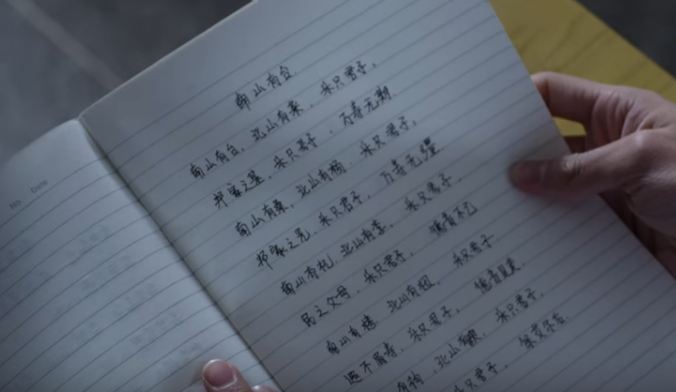 No Date
南山有台
南山有台, 北山有莱, 乐只君子,
邦家之基, 乐只君子, 万寿无期
南山有桑, 北山有杨, 乐只君子,
邦家之光, 乐只君子, 万寿无疆
南山有杞, 北山有李, 乐只君子,
民之父母, 乐只君子, 德音不已
南山有栲, 北山有杻, 乐只君子
遐不眉寿, 乐只君子, 德音是茂,
有枸, 北山有楰, 乐只君子,
乐只君子, 保艾尔后.